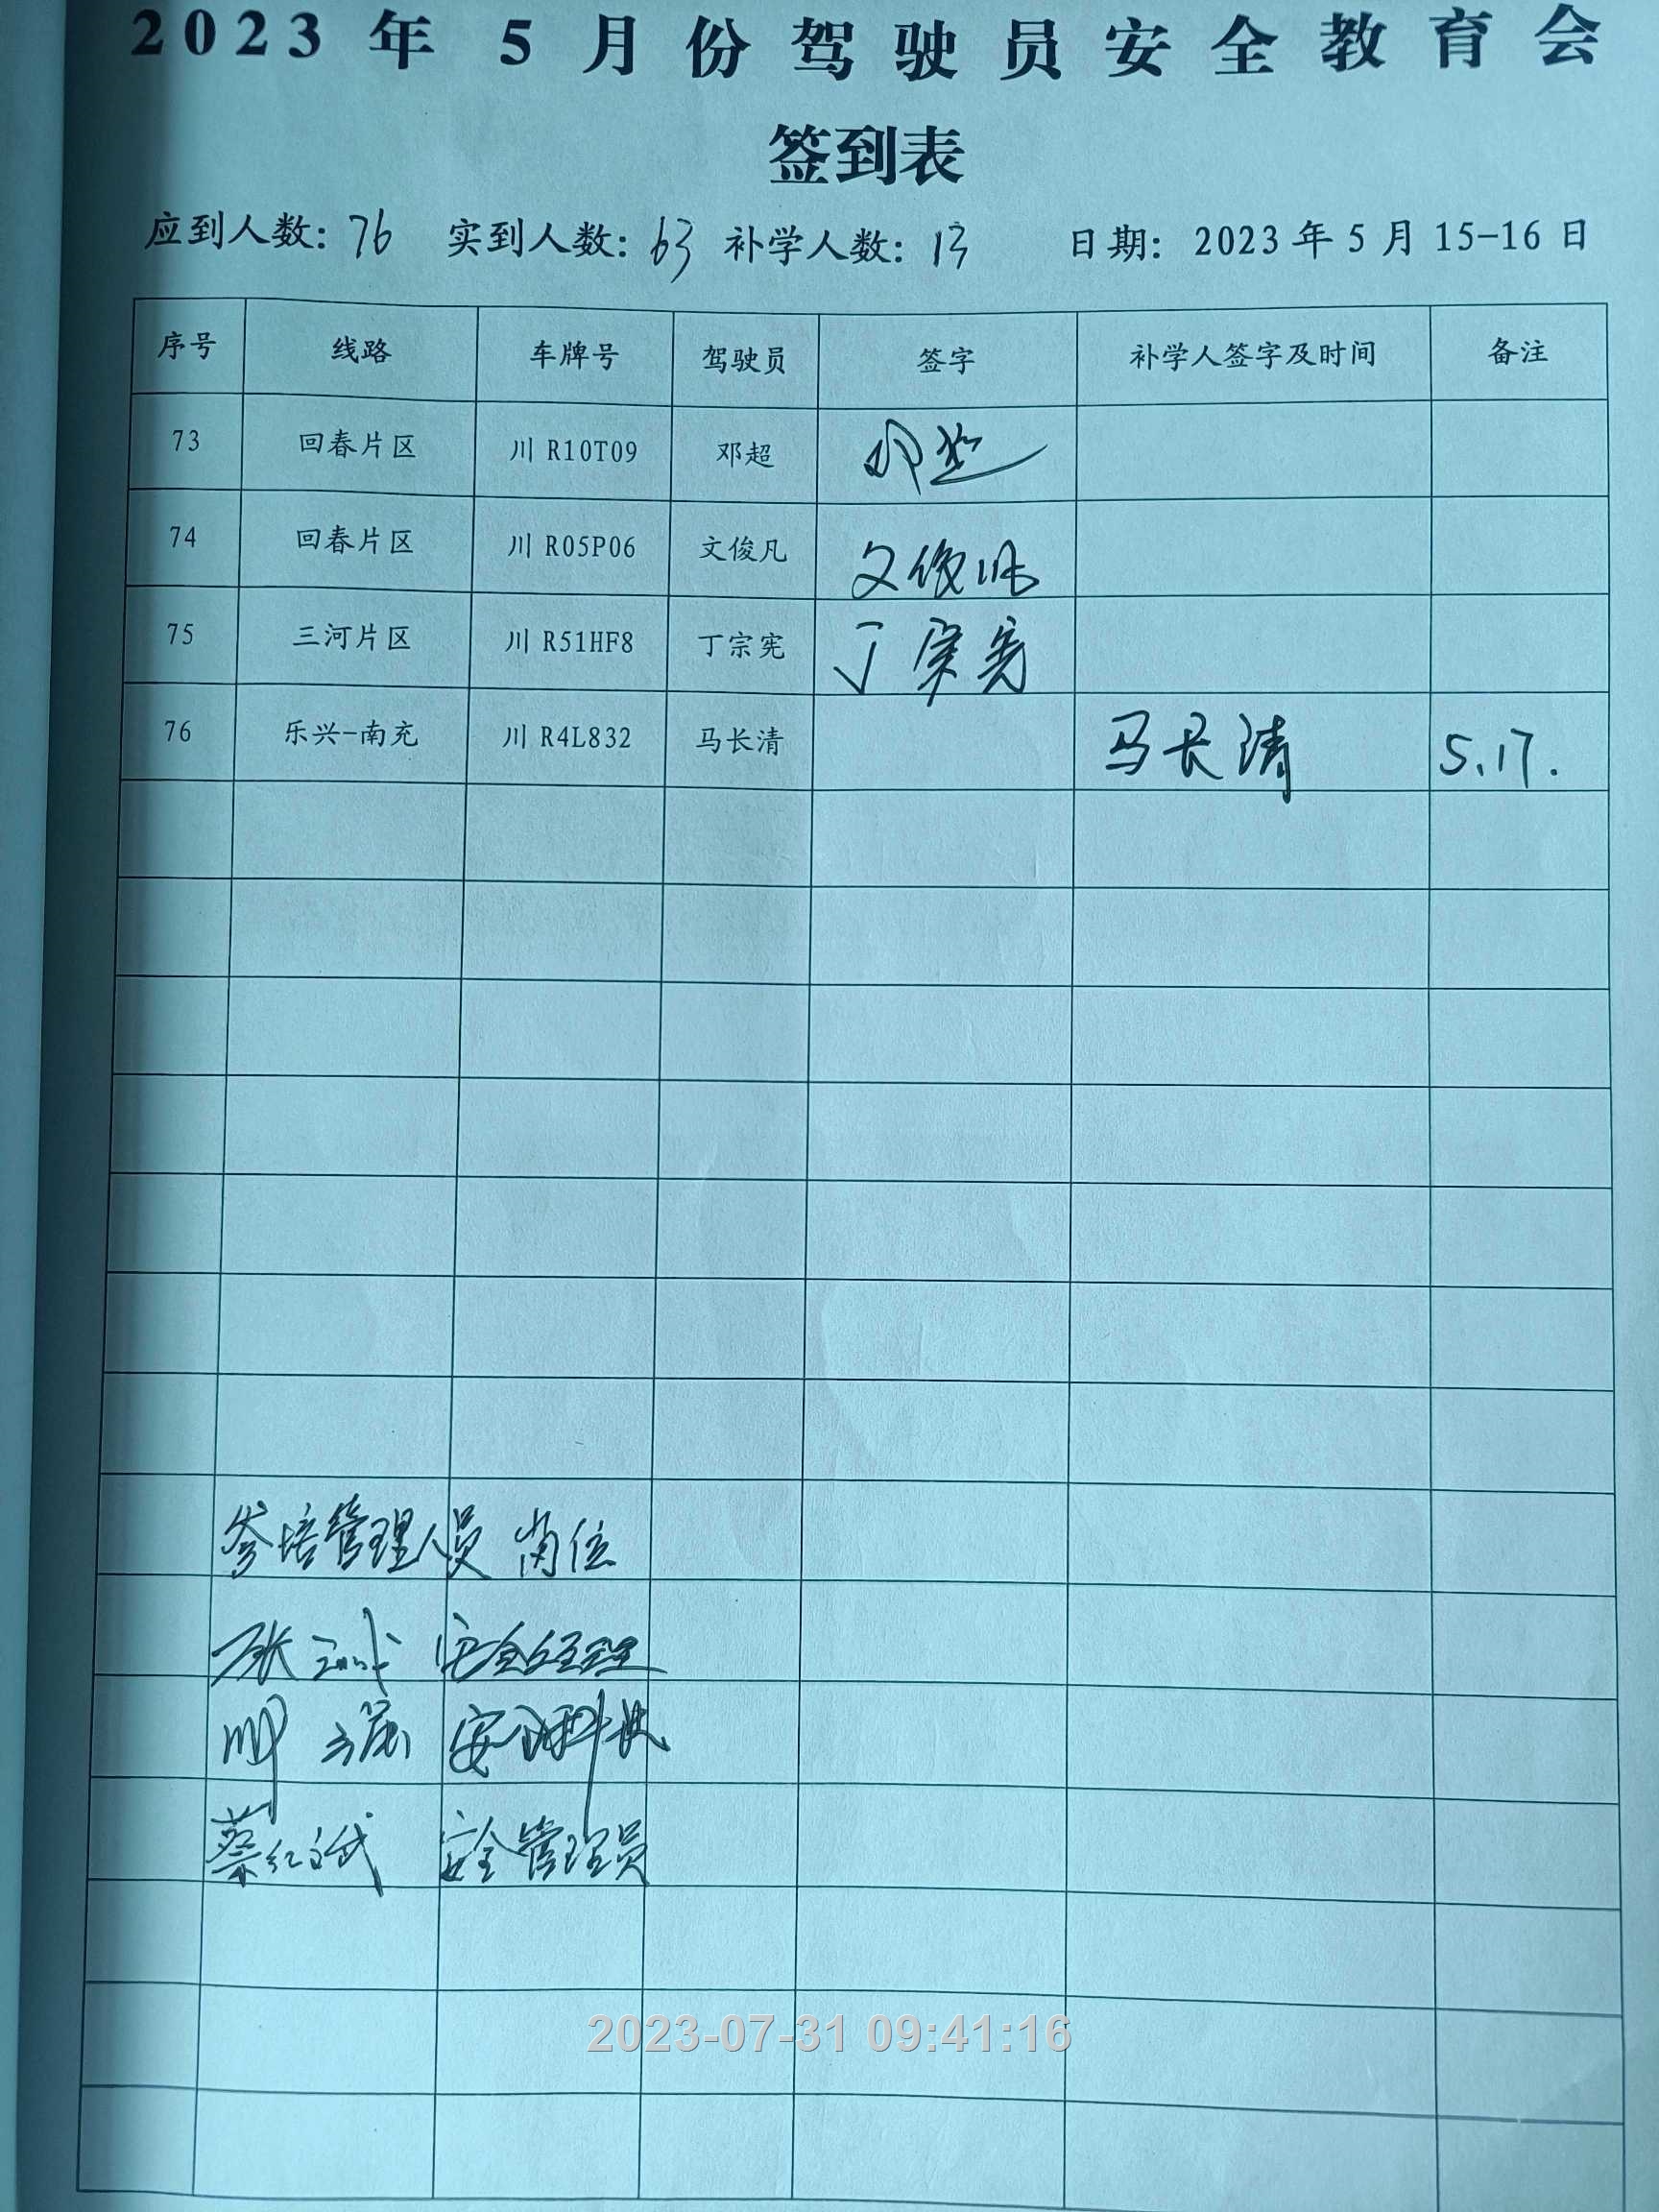 2023年5月份驾驶员安全教育会
签到表
应到人数: 76 实到人数: 63 补学人数: 13 日期: 2023年5月15-16日
序号 线路 车牌号 驾驶员 签字 补学人签字及时间 备注
73 回春片区 川R10T09 邓超 邓超
74 回春片区 川R05P06 文俊凡 文俊凡
75 三河片区 川R51HF8 丁宗宪 丁宗宪
76 乐兴-南充 川R4L832 马长清 马长清 5.17.
参培管理人员 岗位
张 安全经理
安全科长
蔡红武 安全管理员
2023-07-31 09:41:16